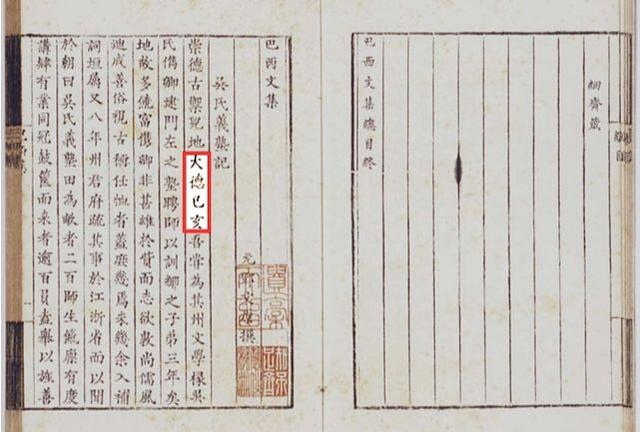 絅齋箴
巴西文集總目終
巴西文集
吳氏義塾記
元 鄧文原 撰
崇德古禦兒地大德已亥吾嘗為其州文學椽吳
氏儁卿建門左之塾聘師以訓鄉之子弟三年矣
地故多饒富儁卿非甚雄於貲而志欲敦尚儒風
迪成善俗視古獨任恤者蓋庶幾焉未幾余入補
詞垣屬又八年州君府疏其事於江浙省而以聞
於朝曰吳氏義塾田為畝者二百師生餼廩有度
講肄有業同冠鼓篋而來者逾百員盍舉以旌善